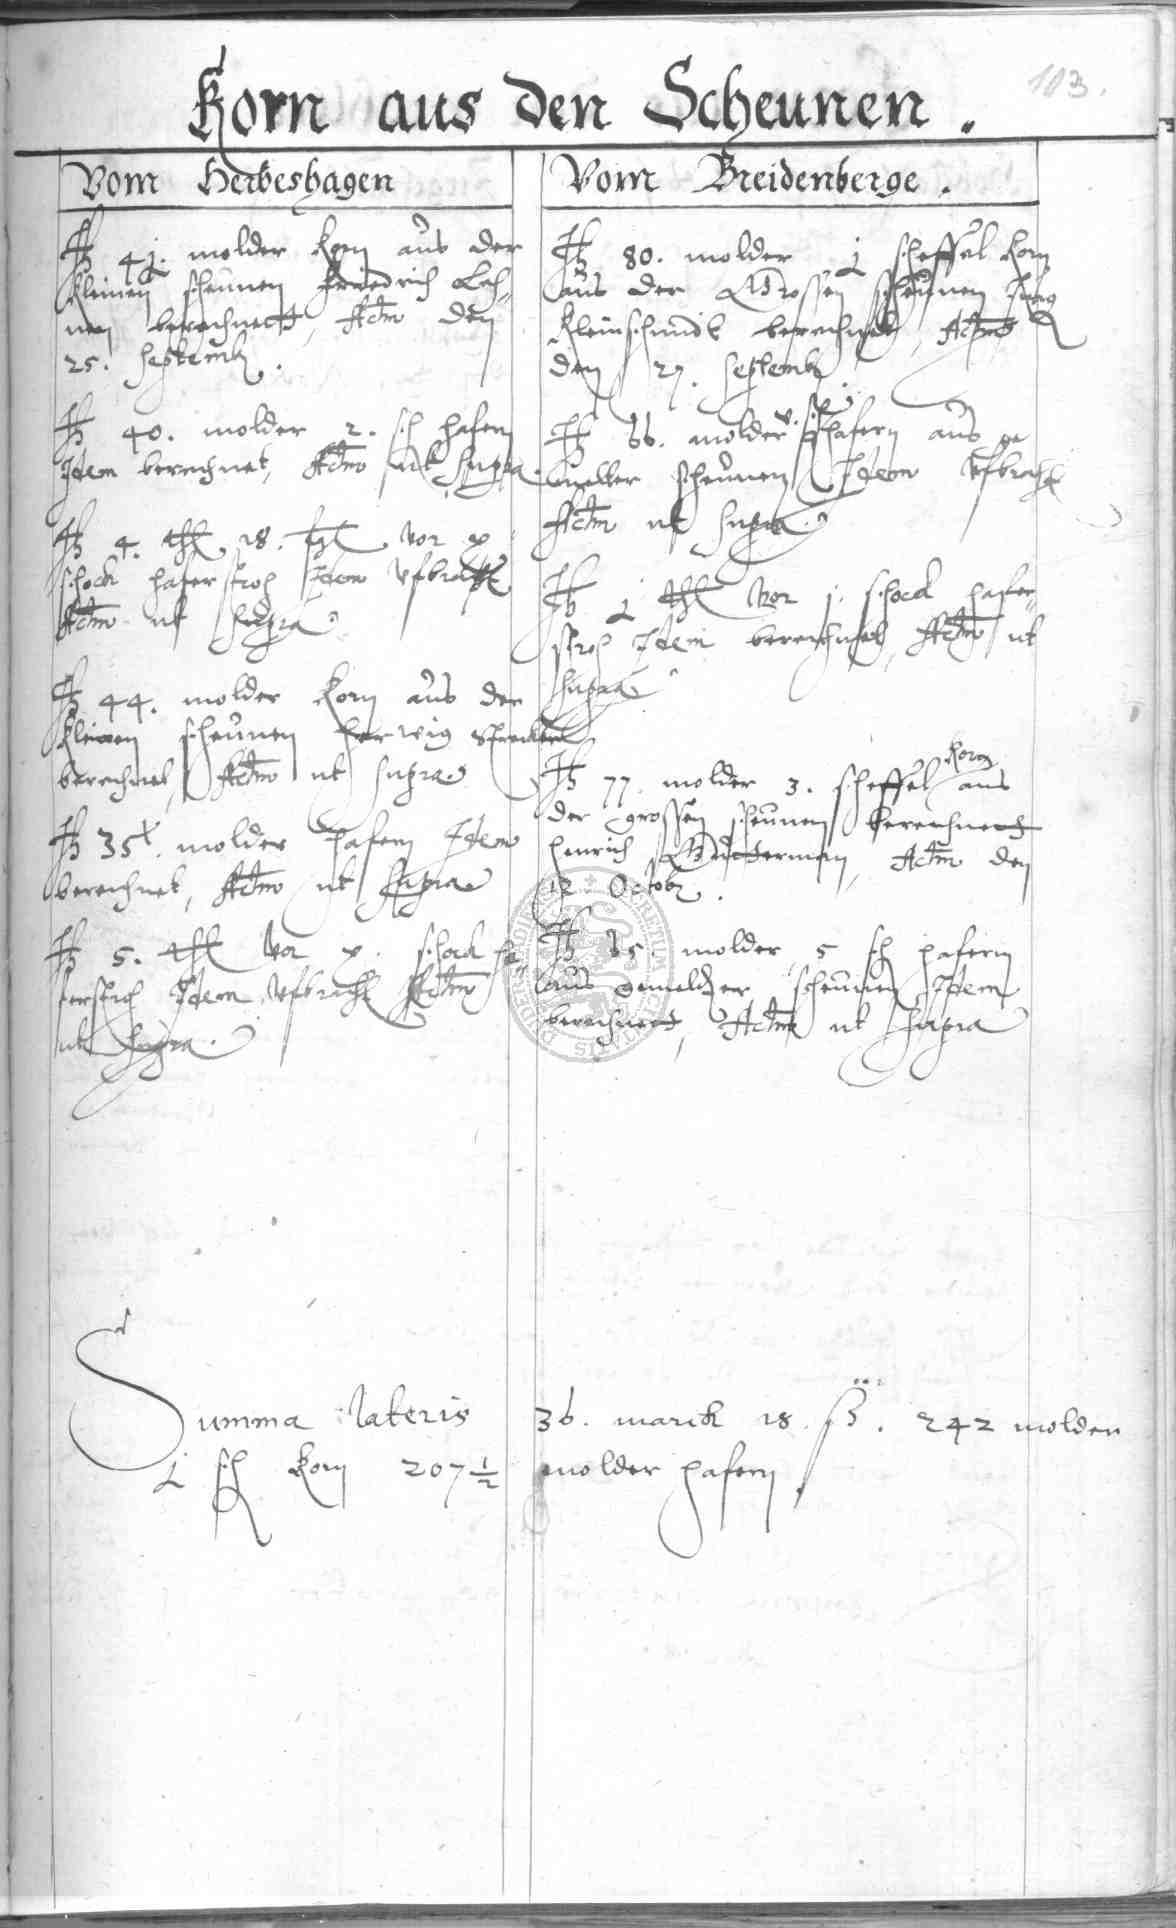 103.
Korn aus den Scheunen.
Vom Herbeshagen
It 41. molder Korn aus der
kleinen scheunen Friedrich Leh-
nen berechnett, Actm den
25. Septemb.
It 40. molder 2. sch hafern
Idem berechnet, Actm ut supra.
It 4. thl 18. vor x
schock haferstroh Idem vfbracht
Actm ut supra.
It 44. molder Korn aus der
kleinen scheunen Herwig
berechnet, Actm ut supra.
It 35 molder hafern Idem
berechnet, Actm ut supra
It 5. thl vor x. schock ha-
ferstroh Idem vfbracht Actm
ut supra.
Vom Breidenberge.
It 80. molder 1 scheffel Korn
aus der Grossen scheunen Jurg
Kleinschmidt berechnet, Actm
den 27. Septemb.
It 66. molder v. sch. hafern aus ge
melter scheunen Idem vfbracht
Actm ut supra.
It 1 thl vor j. schock hafer-
stroh Idem berechnet, Actm ut
supra
It 77. molder 3. scheffel Korn aus
der grossen scheunen berechnett
Henrich, Actm den
12 Octobr.
It 65. molder 5 sch hafern
aus gemelter scheunen Idem
berechnett, Actm ut supra
Summa lateris 36. marck 18. ß. 242 molder
1 sch Korn 207 1/2 molder hafern.